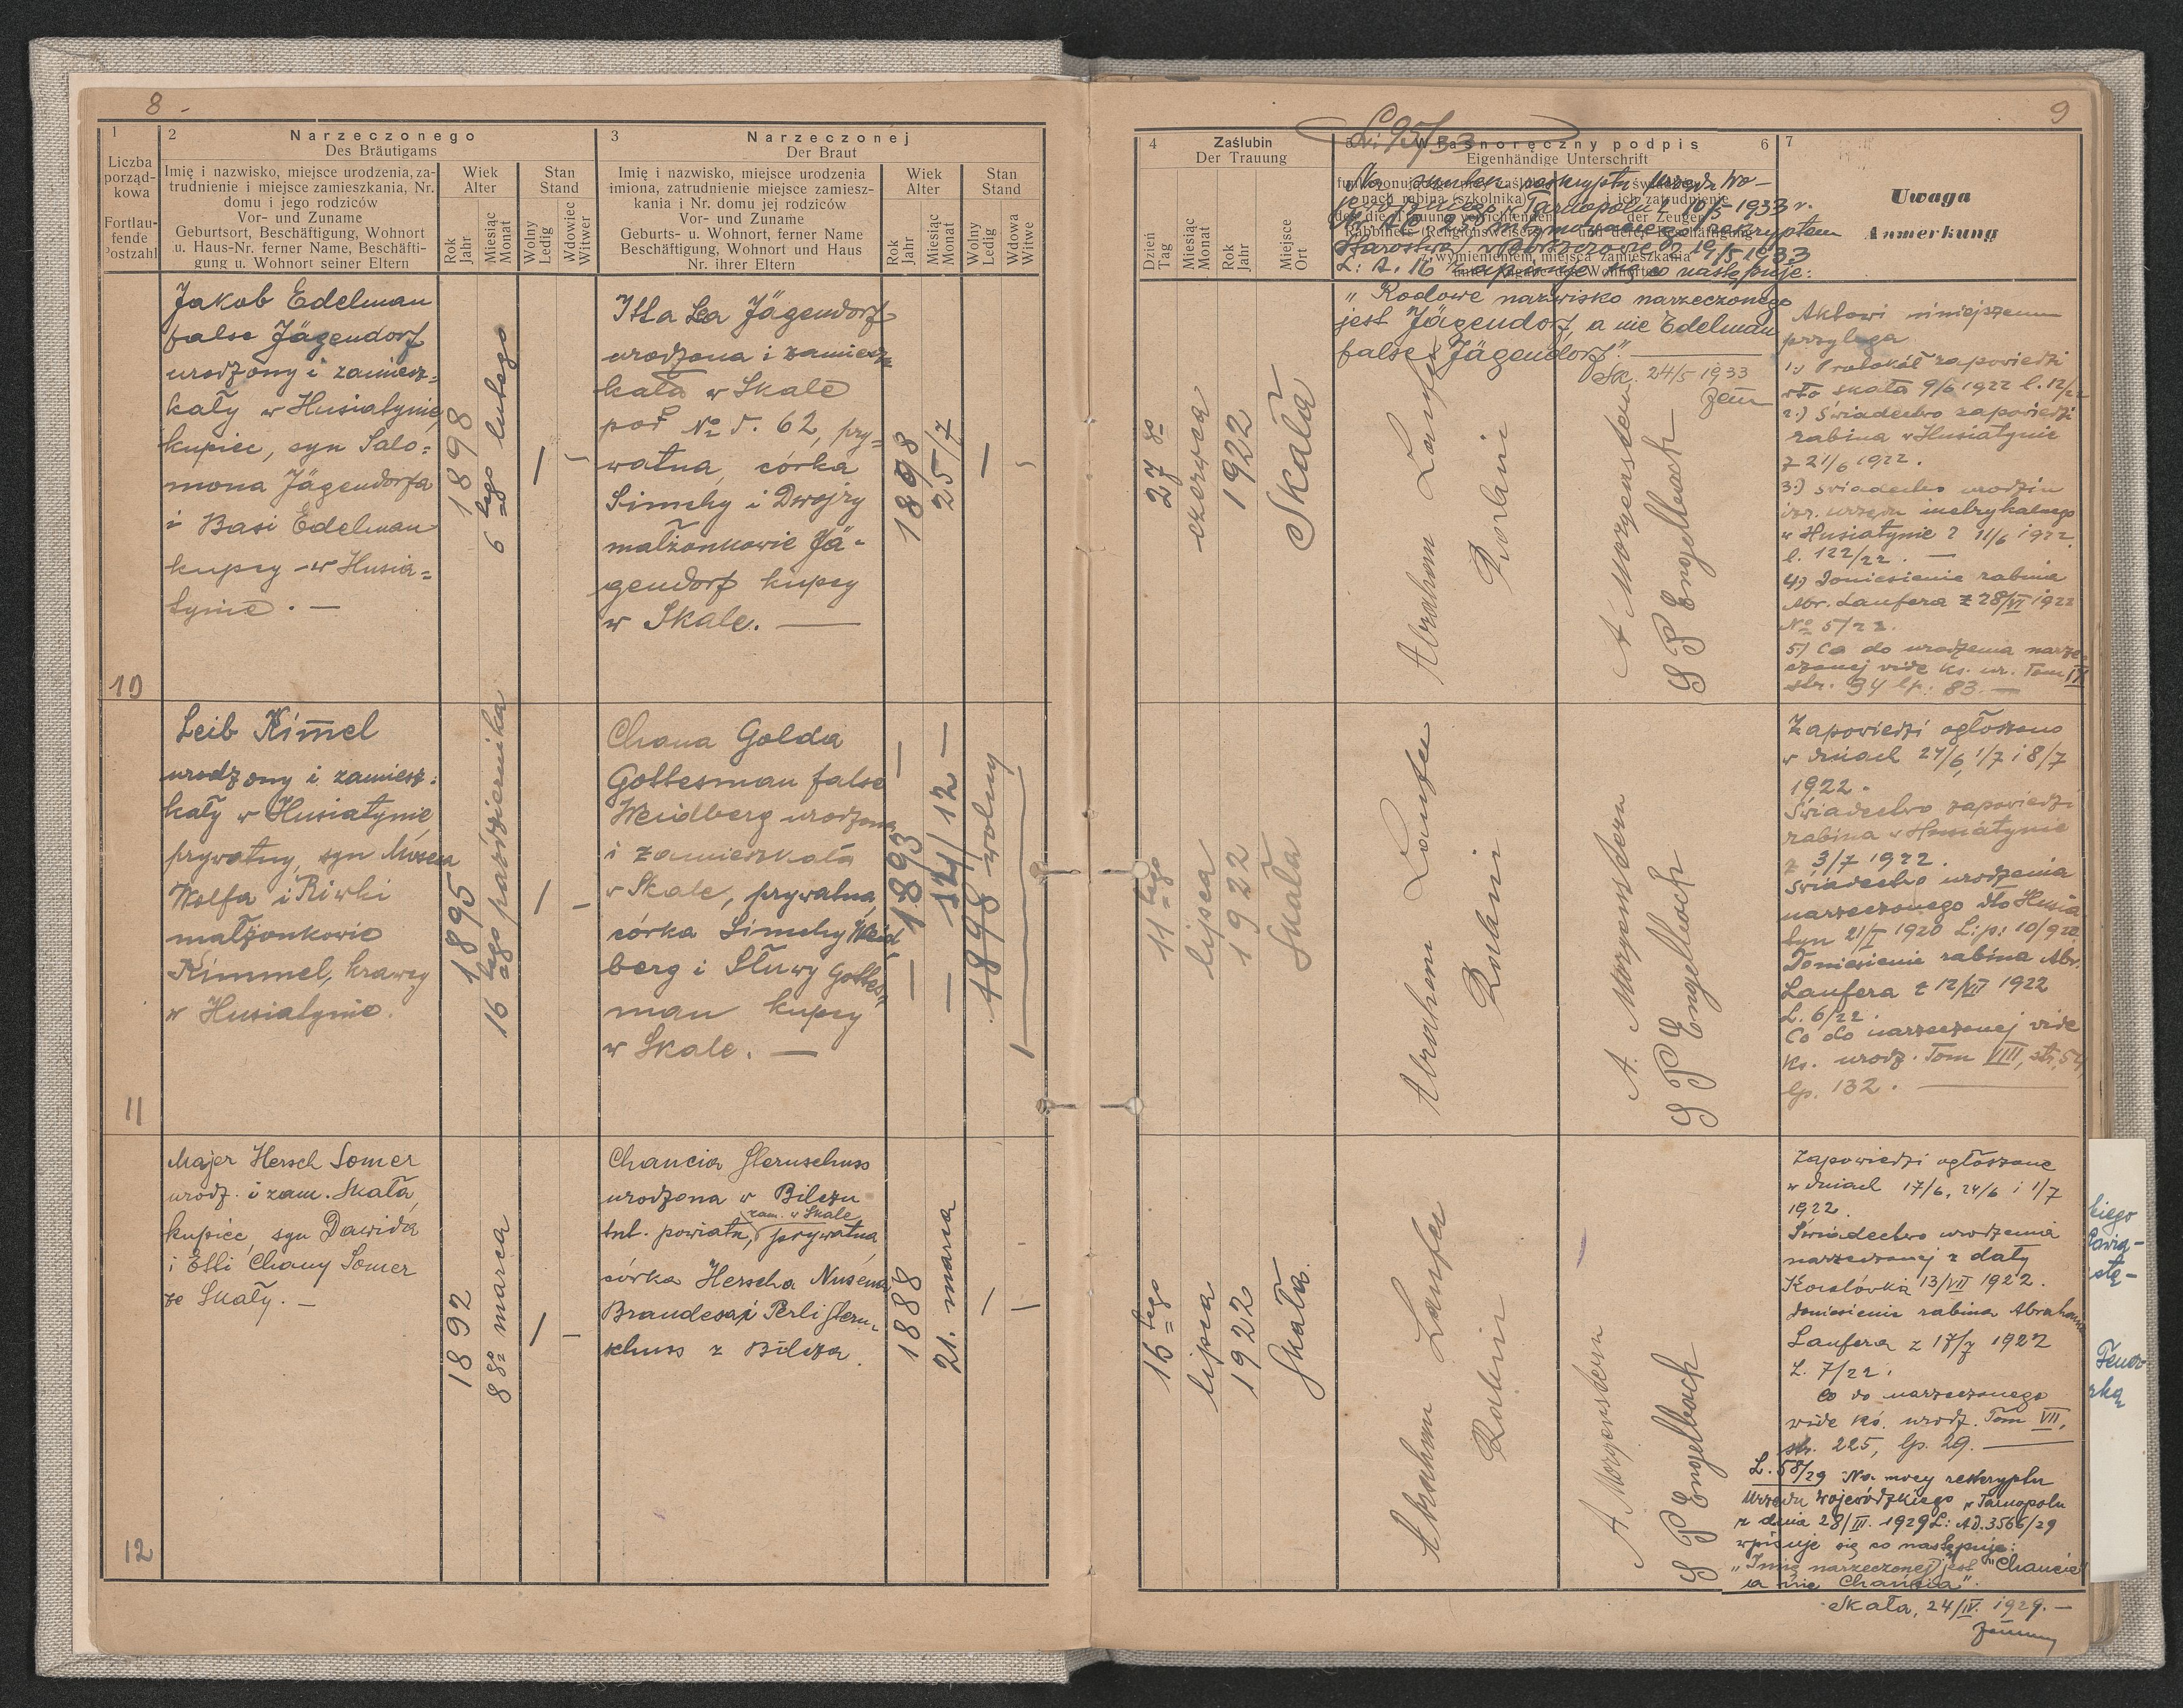 8 -
1
Liczba
porząd-
kowa
Fortlau-
fende
Postzahl
2
Narzeczonego
Des Bräutigams
Imię i nazwisko, miejsce urodzenia, za-
trudnienie i miejsce zamieszkania, Nr.
domu i jego rodziców
Vor- und Zuname
Geburtsort, Beschäftigung, Wohnort
u. Haus-Nr. ferner Name, Beschäfti-
gung u. Wohnort seiner Eltern
Wiek
Alter
Rok
Jahr
Miesiąc
Monat
Stan
Stand
Wolny
Ledig
Wdowiec
Witwer
3
Narzeczonej
Der Braut
Imię i nazwisko, miejsce urodzenia
imiona, zatrudnienie miejsce zamiesz-
kania i Nr. domu jej rodziców
Vor- und Zuname
Geburts- u. Wohnort, ferner Name
Beschäftigung, Wohnort und Haus
Nr. ihrer Eltern
Wiek
Alter
Rok
Jahr
Miesiąc
Monat
Stan
Stand
Wolny
Ledig
Wdowa
Witwe
10
Jakob Edelman
false Jägendorf
urodzony i zamiesz=
kały w Husiatynie,
kupiec, syn Salo=
mona Jägendorfa
i Basi Edelman
kupcy w Husia=
tynie. —
1898
6 tego lutego
Itta Lea Jägendorf
urodzona i zamiesz=
kała w Skale
pod № d. 62, pry=
watna, córka
Simchy i Dwojry
małżonkowie Jä-
gendorf kupcy
w Skale. —
1898
25/7
11
Leib Kimmel
urodzony i zamiesz=
kały w Husiatynie,
prywatny, syn Mosesa
Wolfa i Riwki
małżonkowie
Kimmel, krawcy
w Husiatynie.
1895
16 tego października
Chana Golda
Gottesman false
Weidberg urodzona
i zamieszkała
w Skale, prywatna,
córka Simchy Weid
berg i Sluwy Gottes=
man kupcy
w Skale. —
— 1893 —
— 14/12 —
1898 wolny
12
Majer Hersch Somer
urodz. i zam. Skała,
kupiec, syn Dawida
i Etli Chany Somer
ze Skały. —
1892
8 go marca
Chancia Sternschuss
urodzona w Bilczu
zam. w Skale
tut. powiatu, prywatna,
córka Herscha Nusena
Brandesa i Perli Stern-
schuss z Bilcza.
1888
21. marca
9
4
Zaślubin
Der Trauung
Dzień
Tag
Miesiąc
Monat
Rok
Jahr
Miejsce
Ort
5
Własnoręczny podpis
Eigenhändige Unterschrift
6
7
Uwaga
Anmerkung
L: 95/33
jewódzkiego w Tarnopolu z 10/5 1933 r.
Starostwa w Borszczowie z 19/5 1933
"Rodowe nazwisko narzeczonego
jest Jägendorf, a nie Edelman
false Jägendorf". —
Sk. 24/5 1933
27 go
czerwca
1922
Skała
Abraham Laufer
Rabin
A Morgenstern
S P Engelbach
Aktowi niniejszemu
przylega
1.) Protokół zapowiedzi
dto Skała 9/6 1922 l. 12/22
2.) Świadectwo zapowiedzi
rabina w Husiatynie
z 21/6 1922.
3.) świadectwo urodzin
izr. urzędu metrykalnego
w Husiatynie z 11/6 1922
l. 122/22. —
4.) Doniesienie rabina
Abr. Laufera z 28/VI 1922
№ 5/22.
5.) Co do urodzenia narze-
czonej vide ks. ur. Tom IX
str. 94 lp. 83. —
11 tego
lipca
1922
Skała
Abraham Laufer
Rabin
A. Morgenstern
S P Engelbach
Zapowiedzi ogłoszono
w dniach 24/6, 1/7 i 8/7
1922.
Świadectwo zapowiedzi
rabina w Husiatynie
z 3/7 1922.
Świadectwo urodzenia
narzeczonego dto Husia
tyn 21/I 1920 L:p: 10/920
Doniesienie rabina Abr.
Laufera z 12/VII 1922
L. 6/22.
Co do narzeczonej vide
ks. urodz. Tom VIII, str. 54,
lp. 132. —
16 tego
lipca
1922
Skała.
Abraham Laufer
Rabin
A Morgenstern
S P Engelbach
Zapowiedzi ogłoszone
w dniach 17/6, 24/6 i 1/7
1922.
Świadectwo urodzenia
narzeczonej z daty
13/VII 1922.
Doniesienie rabina Abrahama
Laufera z 17/7 1922
L. 7/22.
Co do narzeczonego
vide ks. urodz. Tom VII,
str. 225, lp. 29. —
L. 58/29 Na mocy reskryptu
Urzędu Wojewódzkiego w Tarnopolu
z dnia 28/III. 1929 L: AD. 3566/29
wpisuje się co następuje:
"Imię narzeczonej jest "Chancie"
a nie Chancia".
Skała, 24/IV. 1929. —